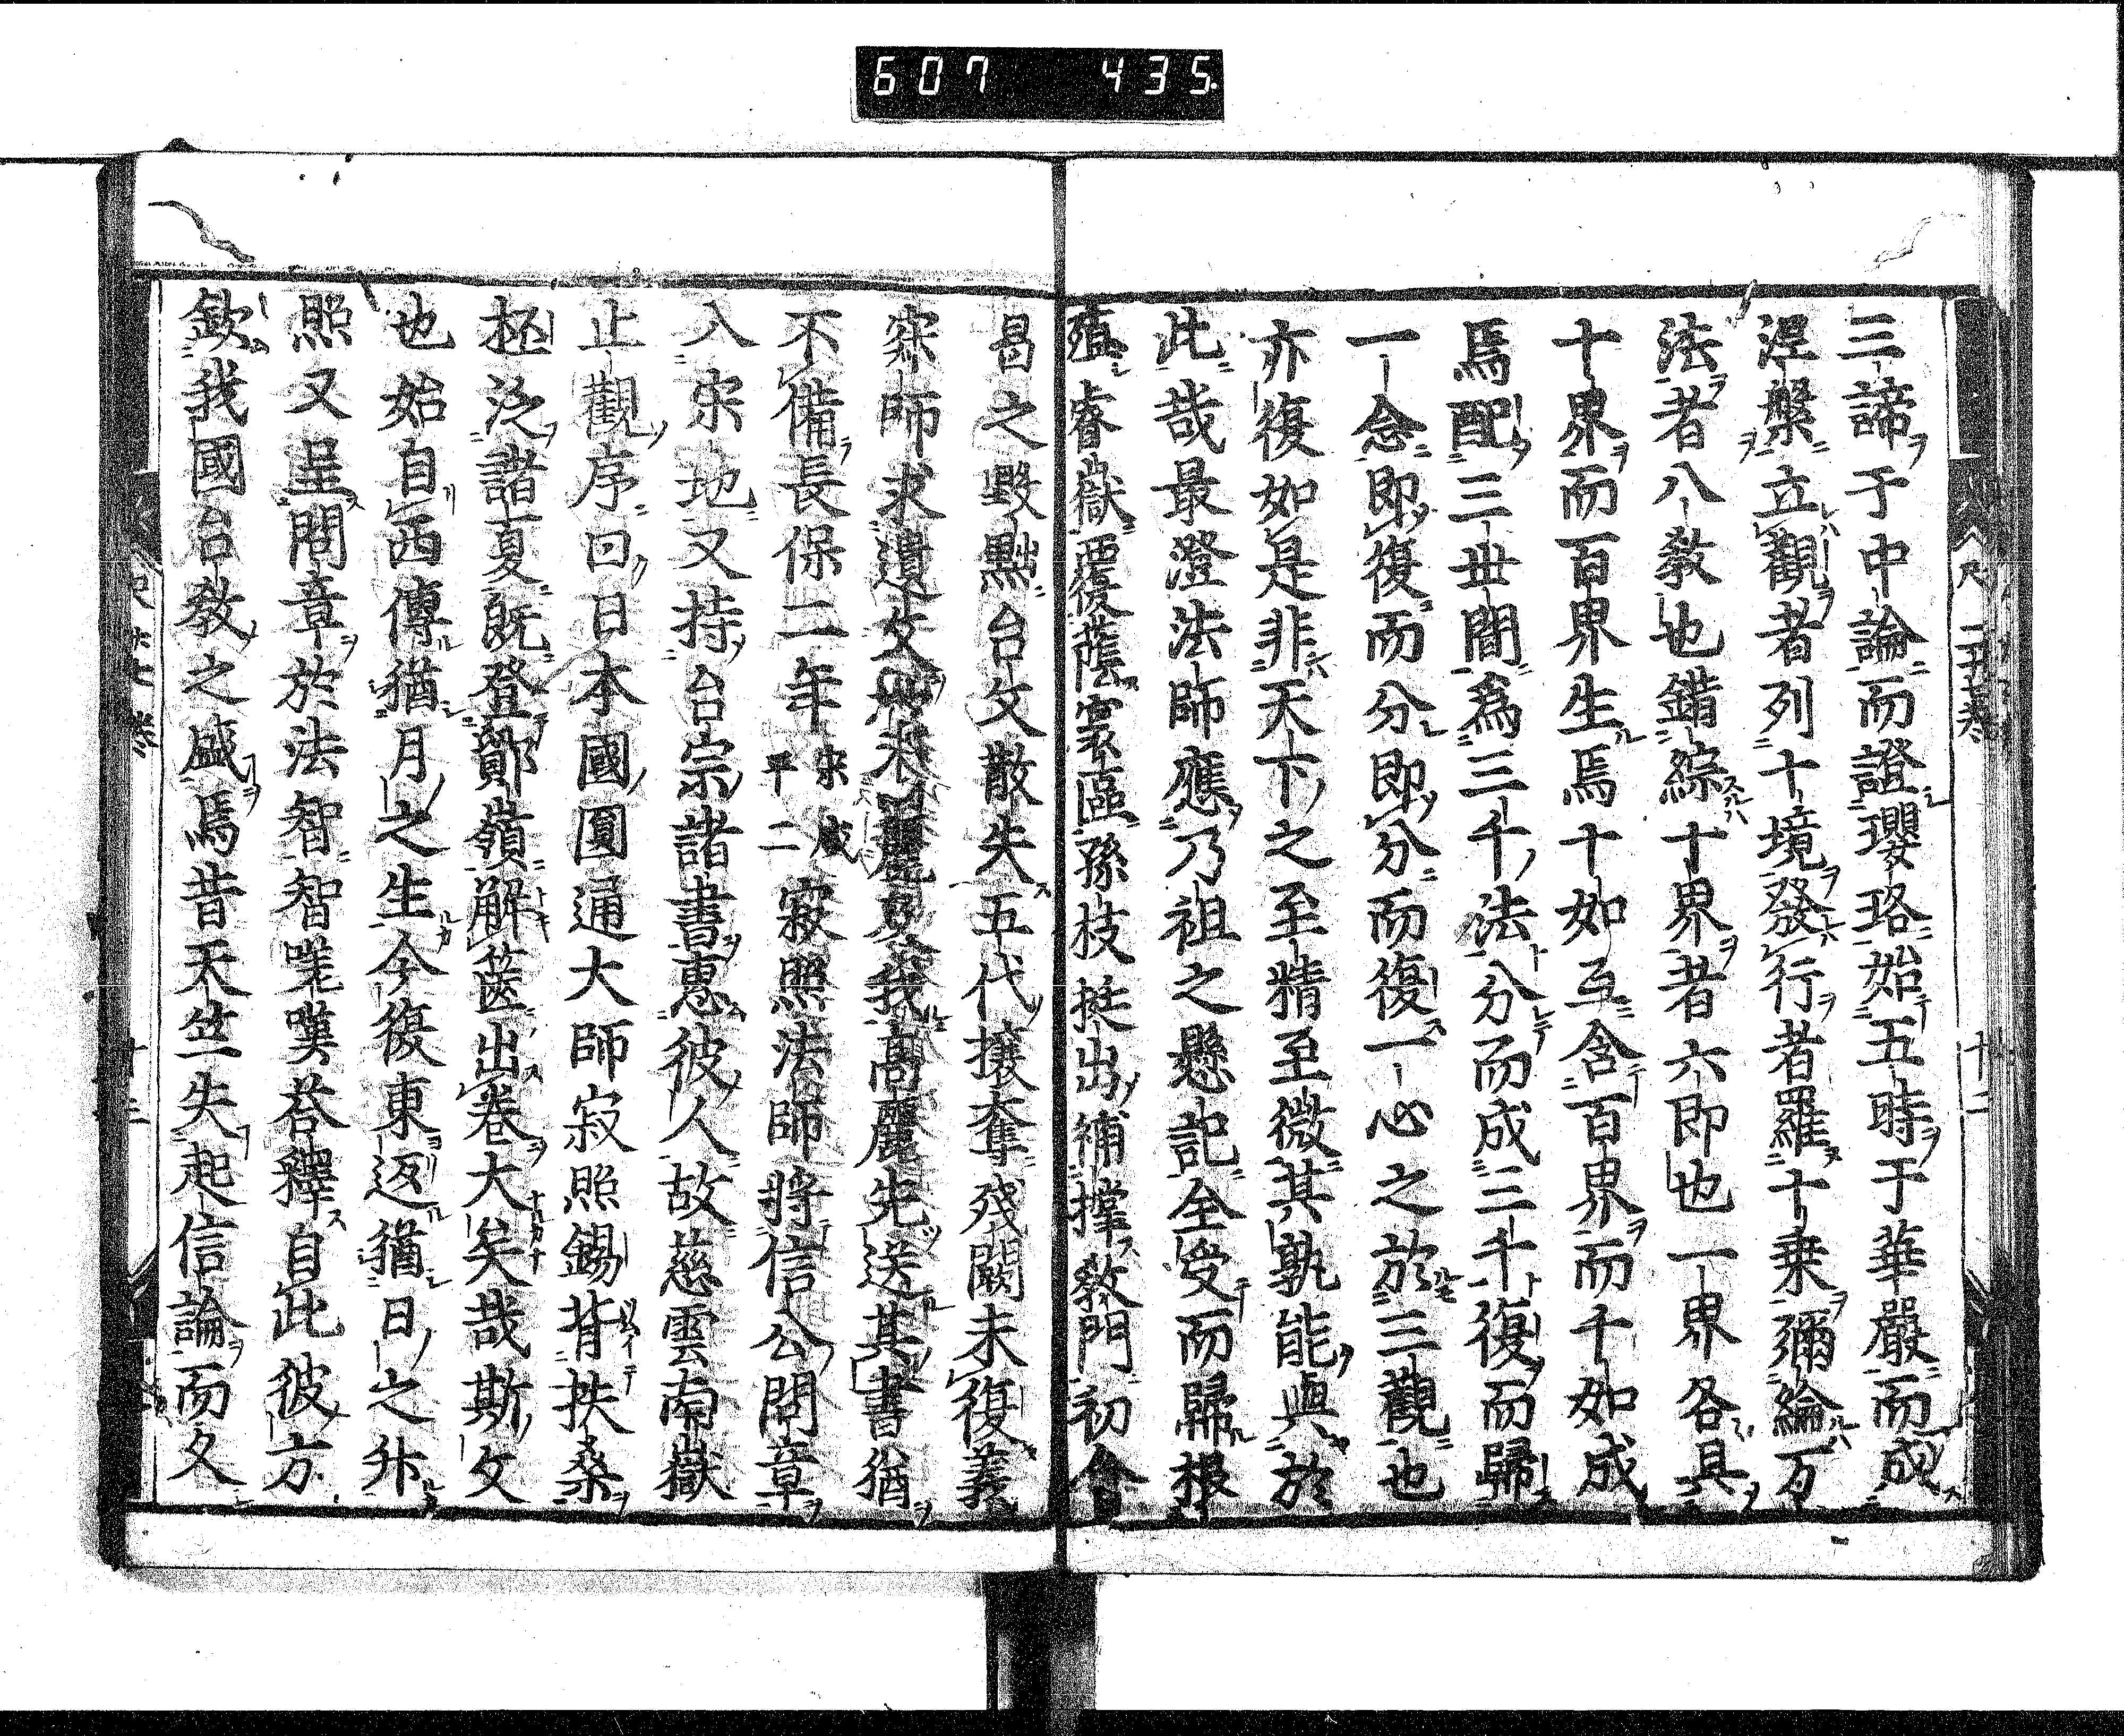 607 435
三諦于中論而證瓔珞始五時于華嚴而成
涅槃立觀者列十境發行者羅十乗彌綸万
法者八教也錯綜十界者六即也一界各具
十界而百界生焉十如互含百界而千如成
焉配三世間為三千法分而成三千復而歸
一念即復而分即分而復一心之於三觀也
亦復如是非天下之至精至微其孰能與於
此哉最澄法師應乃祖之懸記全受而歸根
殖睿嶽覆蔭寰區孫枝挺出補撑教門初會
昌之毀黜台文散失五代攘奪殘闕未復義
寂師求遺文
先送其書猶
不備長保二年宋咸平二寂照法師將信公問章
入宋地又持台宗諸書惠彼人故慈雲南嶽
止觀序曰日本國圓通大師寂照錫背扶桑
杯泛諸夏既登鄮嶺解篋出卷大矣哉斯文
也始自西傳猶月之生今復東返猶日之升
照又呈問章於法智智嘆荅釋自此彼方
欽我國台教之盛焉昔天竺失起信論而久